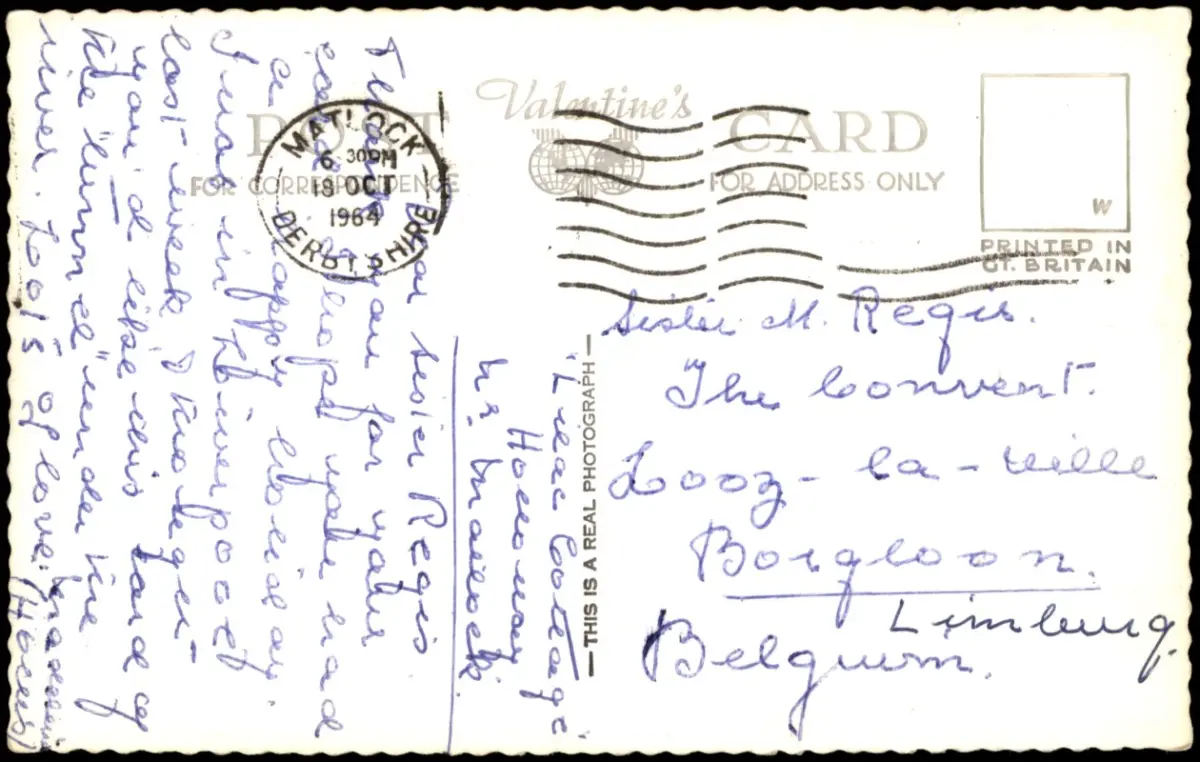 POST Valentine's CARD
FOR CORRESPONDENCE
FOR ADDRESS ONLY
MATLOCK
6 30PM
18 OCT
1964
DERBYSHIRE
W
PRINTED IN
GT. BRITAIN
THIS IS A REAL PHOTOGRAPH
Cottage
Holloway
Nr. Matlock.
Dear Sister Regis
Thank you for your
card. I hope you had
a happy holiday.
I was in Liverpool
last week & thought
you'd like this card of
the tunnel under the
river. Lots of love.
Sister M. Regis.
The Convent.
Looz-la-ville
Borgloon.
Limburg.
Belgium.